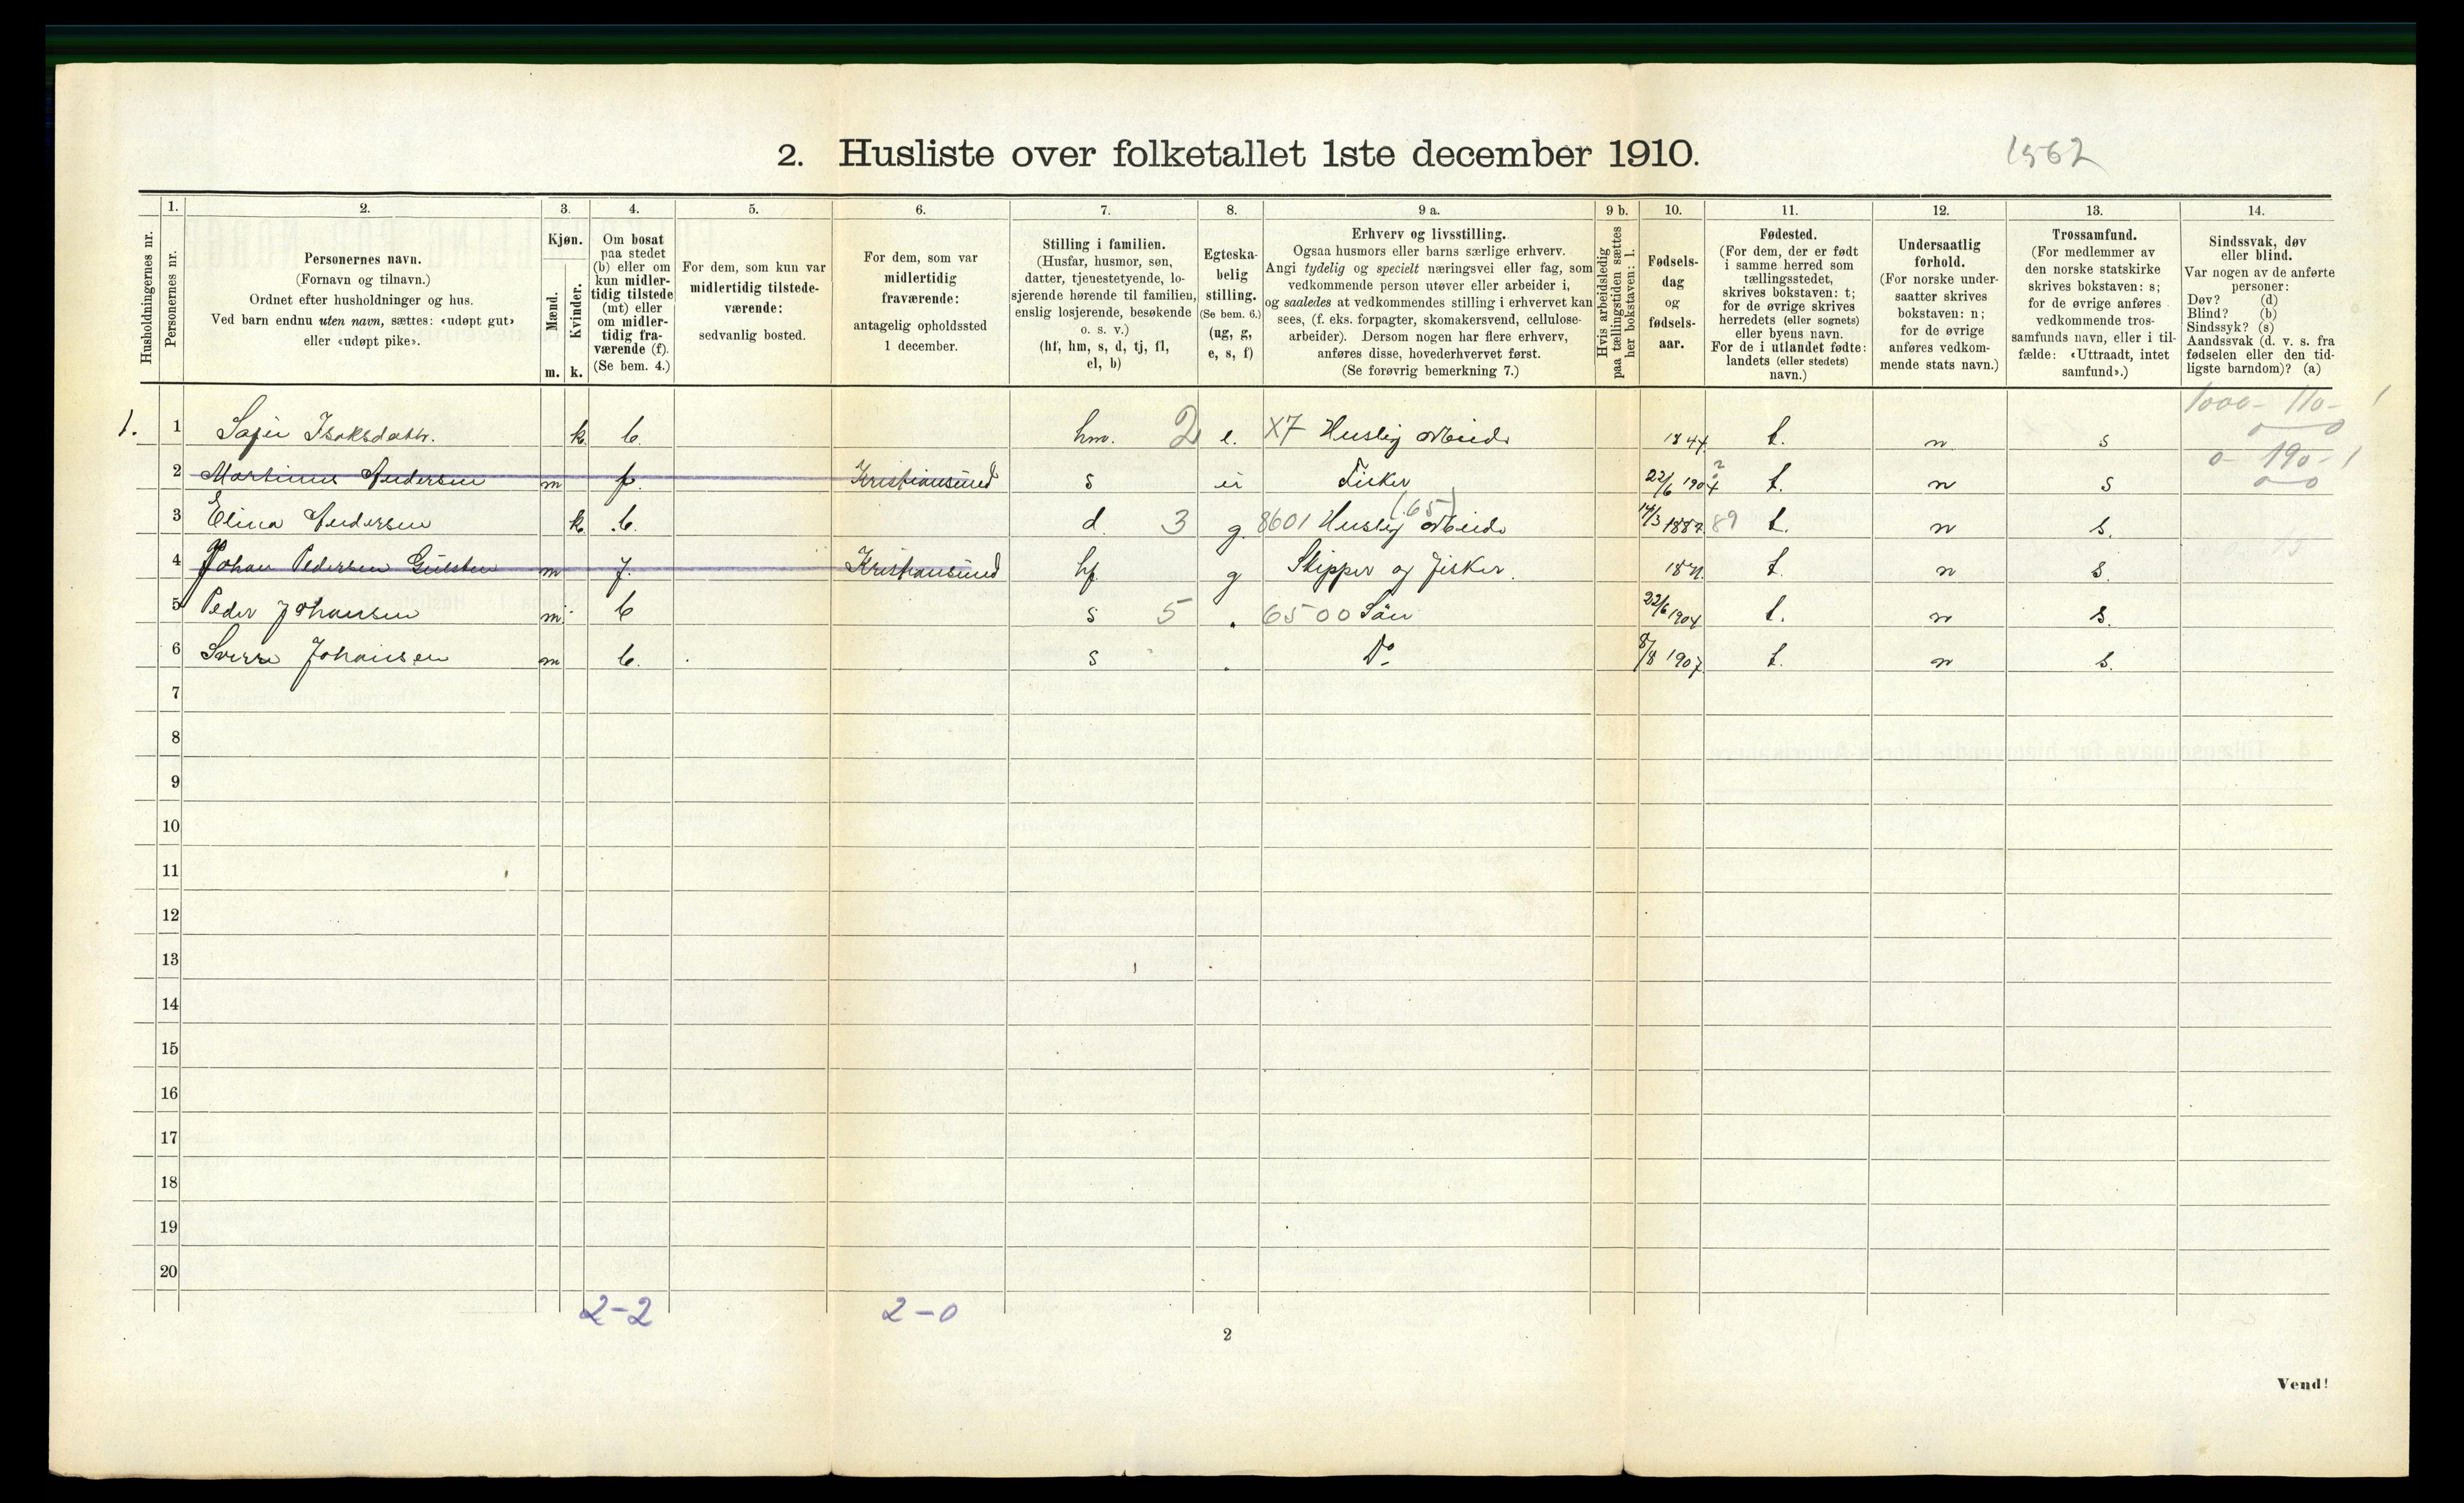 2. Husliste over folketallet 1ste december 1910.
1562
Husholdningernes nr.
1.
Personernes nr.
2.
Personernes navn.
(Fornavn og tilnavn.)
Ordnet efter husholdninger og hus.
Ved barn endnu uten navn, sættes: «udøpt gut»
eller «udøpt pike».
3.
Kjøn.
Mænd.
Kvinder.
m. k.
4.
Om bosat
paa stedet
(b) eller om
kun midler-
tidig tilstede
(mt) eller
om midler-
tidig fra-
værende (f).
(Se bem. 4.)
5.
For dem, som kun var
midlertidig tilstede-
værende:
sedvanlig bosted.
6.
For dem, som var
midlertidig
fraværende:
antagelig opholdssted
1 december.
7.
Stilling i familien.
(Husfar, husmor, søn,
datter, tjenestetyende, lo-
sjerende hørende til familien,
enslig losjerende, besøkende
o. s. v.)
(hf, hm, s, d, tj, fl,
el, b)
8.
Egteska-
belig
stilling.
(Se bem. 6.)
(ug, g,
e, s, f)
9 a.
Erhverv og livsstilling.
Ogsaa husmors eller barns særlige erhverv.
Angi tydelig og specielt næringsvei eller fag, som
vedkommende person utøver eller arbeider i,
og saaledes at vedkommendes stilling i erhvervet kan
sees, (f. eks. forpagter, skomakersvend, cellulose-
arbeider). Dersom nogen har flere erhverv,
anføres disse, hovederhvervet først.
(Se forøvrig bemerkning 7.)
9 b.
Hvis arbeidsledig
paa tællingstiden sættes
her bokstaven: l.
10.
Fødsels-
dag
og
fødsels-
aar.
11.
Fødested.
(For dem, der er født
i samme herred som
tællingsstedet,
skrives bokstaven: t;
for de øvrige skrives
herredets (eller sognets)
eller byens navn.
For de i utlandet fødte:
landets (eller stedets)
navn.)
12.
Undersaatlig
forhold.
(For norske under-
saatter skrives
bokstaven: n;
for de øvrige
anføres vedkom-
mende stats navn.)
13.
Trossamfund.
(For medlemmer av
den norske statskirke
skrives bokstaven: s;
for de øvrige anføres
vedkommende tros-
samfunds navn, eller i til-
fælde: «Uttraadt, intet
samfund».)
14.
Sindssvak, døv
eller blind.
Var nogen av de anførte
personer:
Døv? (d)
Blind? (b)
Sindssyk? (s)
Aandssvak (d. v. s. fra
fødselen eller den tid-
ligste barndom)? (a)
1000 - 110 - 1
0 0
1. 1 Isaksdattr. k b. hm. 2 e. X7 Huslig arbeide 1844 t. n s
0 - 190 - 1
0 0
2 Martinus Andersen m f Kristiansund s Fisker 22/6 1904 t. n s
3 Elina Andersen k. b. d 3 g. 8601 Huslig (65) arbeide 14/3 1887 89 t. n s.
4 Johan Pedersen m f. Kristiansund hf g Skipper og fisker. t. n s.
5 Peder Johansen m. b s 5 . 6500 Sön 22/6 1904 t. n s.
6 Sverre Johansen m b. s . Do 8/8 1907 t. n s.
7
8
9
10
11
12
13
14
15
16
17
18
19
20
2-2 2-0
2
Vend!